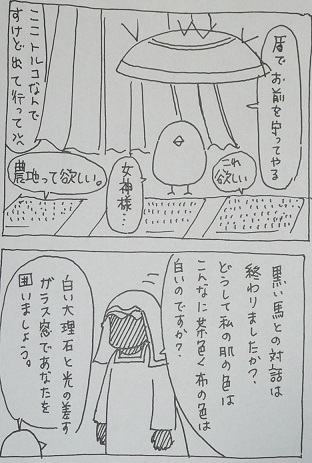 盾でお前を守ってやる
これ
欲しい
女神様…
農地って欲しい。
ここトルコなんで
すけど出て行って
黒い馬との対話は
終わりましたか？
どうして私の肌の色は
こんなに茶色く布の色は
白いのですか？
白い大理石と光の差す
ガラス窓であなたを
囲いましょう。